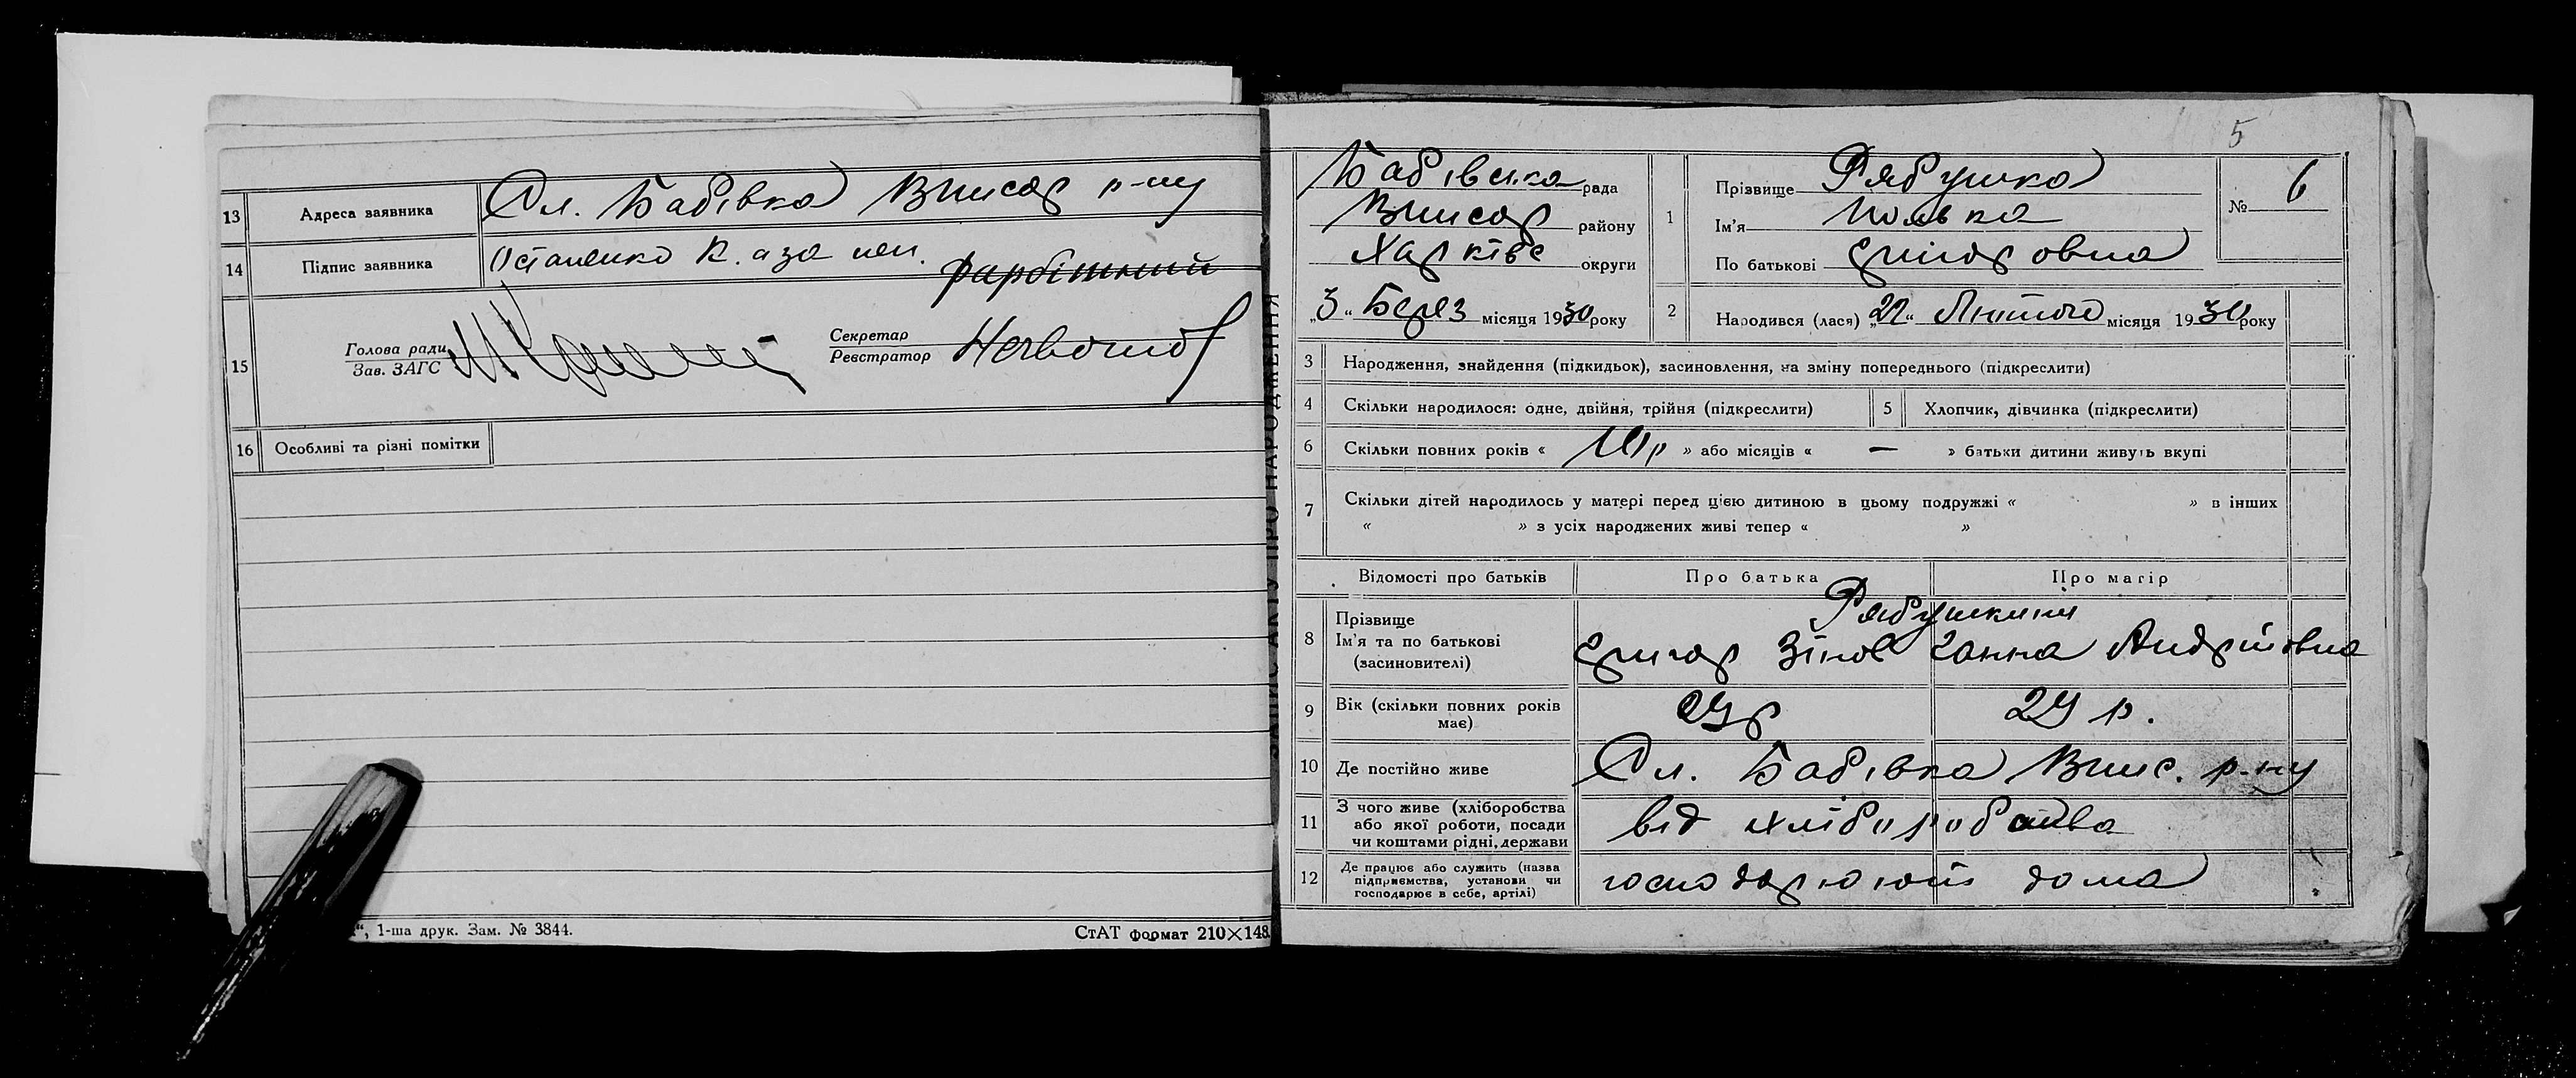 13 Адреса заявника Сл. Бабівка р-ну
14 Підпис заявника Остапенко К. а за неп.
15 Голова ради
Зав. ЗАГС
Секретар
Реєстратор
16 Особливі та різні помітки
1-ша друк. Зам. № 3844.
СтАТ формат 210×148
ЗАПИС АКТУ ПРО НАРОДЖЕННЯ
5
Бабівска рада
району
Харківс округи
„3“ Берез місяця 1930 року
1 Прізвище Рябушка
Ім'я
По батькові Григоровна
№ 6
2 Народився (лася) „22“ Лютого місяця 1930 року
3 Народження, знайдення (підкидьок), засиновлення, на зміну попереднього (підкреслити)
4 Скільки народилося: одне, двійня, трійня (підкреслити)
5 Хлопчик, дівчинка (підкреслити)
6 Скільки повних років « » або місяців « — » батьки дитини живуть вкупі
7 Скільки дітей народилось у матері перед цією дитиною в цьому подружжі « » в інших
« » з усіх народжених живі тепер « »
Відомості про батьків Про батька Про матір
8 Прізвище
Ім'я та по батькові
(засиновителі)
Рябушкини
Григор Зінов Ганна Андрійовна
9 Вік (скільки повних років
має)
29 р 29 р.
10 Де постійно живе Сл. Бабівка р-ну
11 З чого живе (хліборобства
або якої роботи, посади
чи коштами рідні, держави
від хліборобства
12 Де працює або служить (назва
підприємства, установи чи
господарює в себе, артілі)
господарюют дома